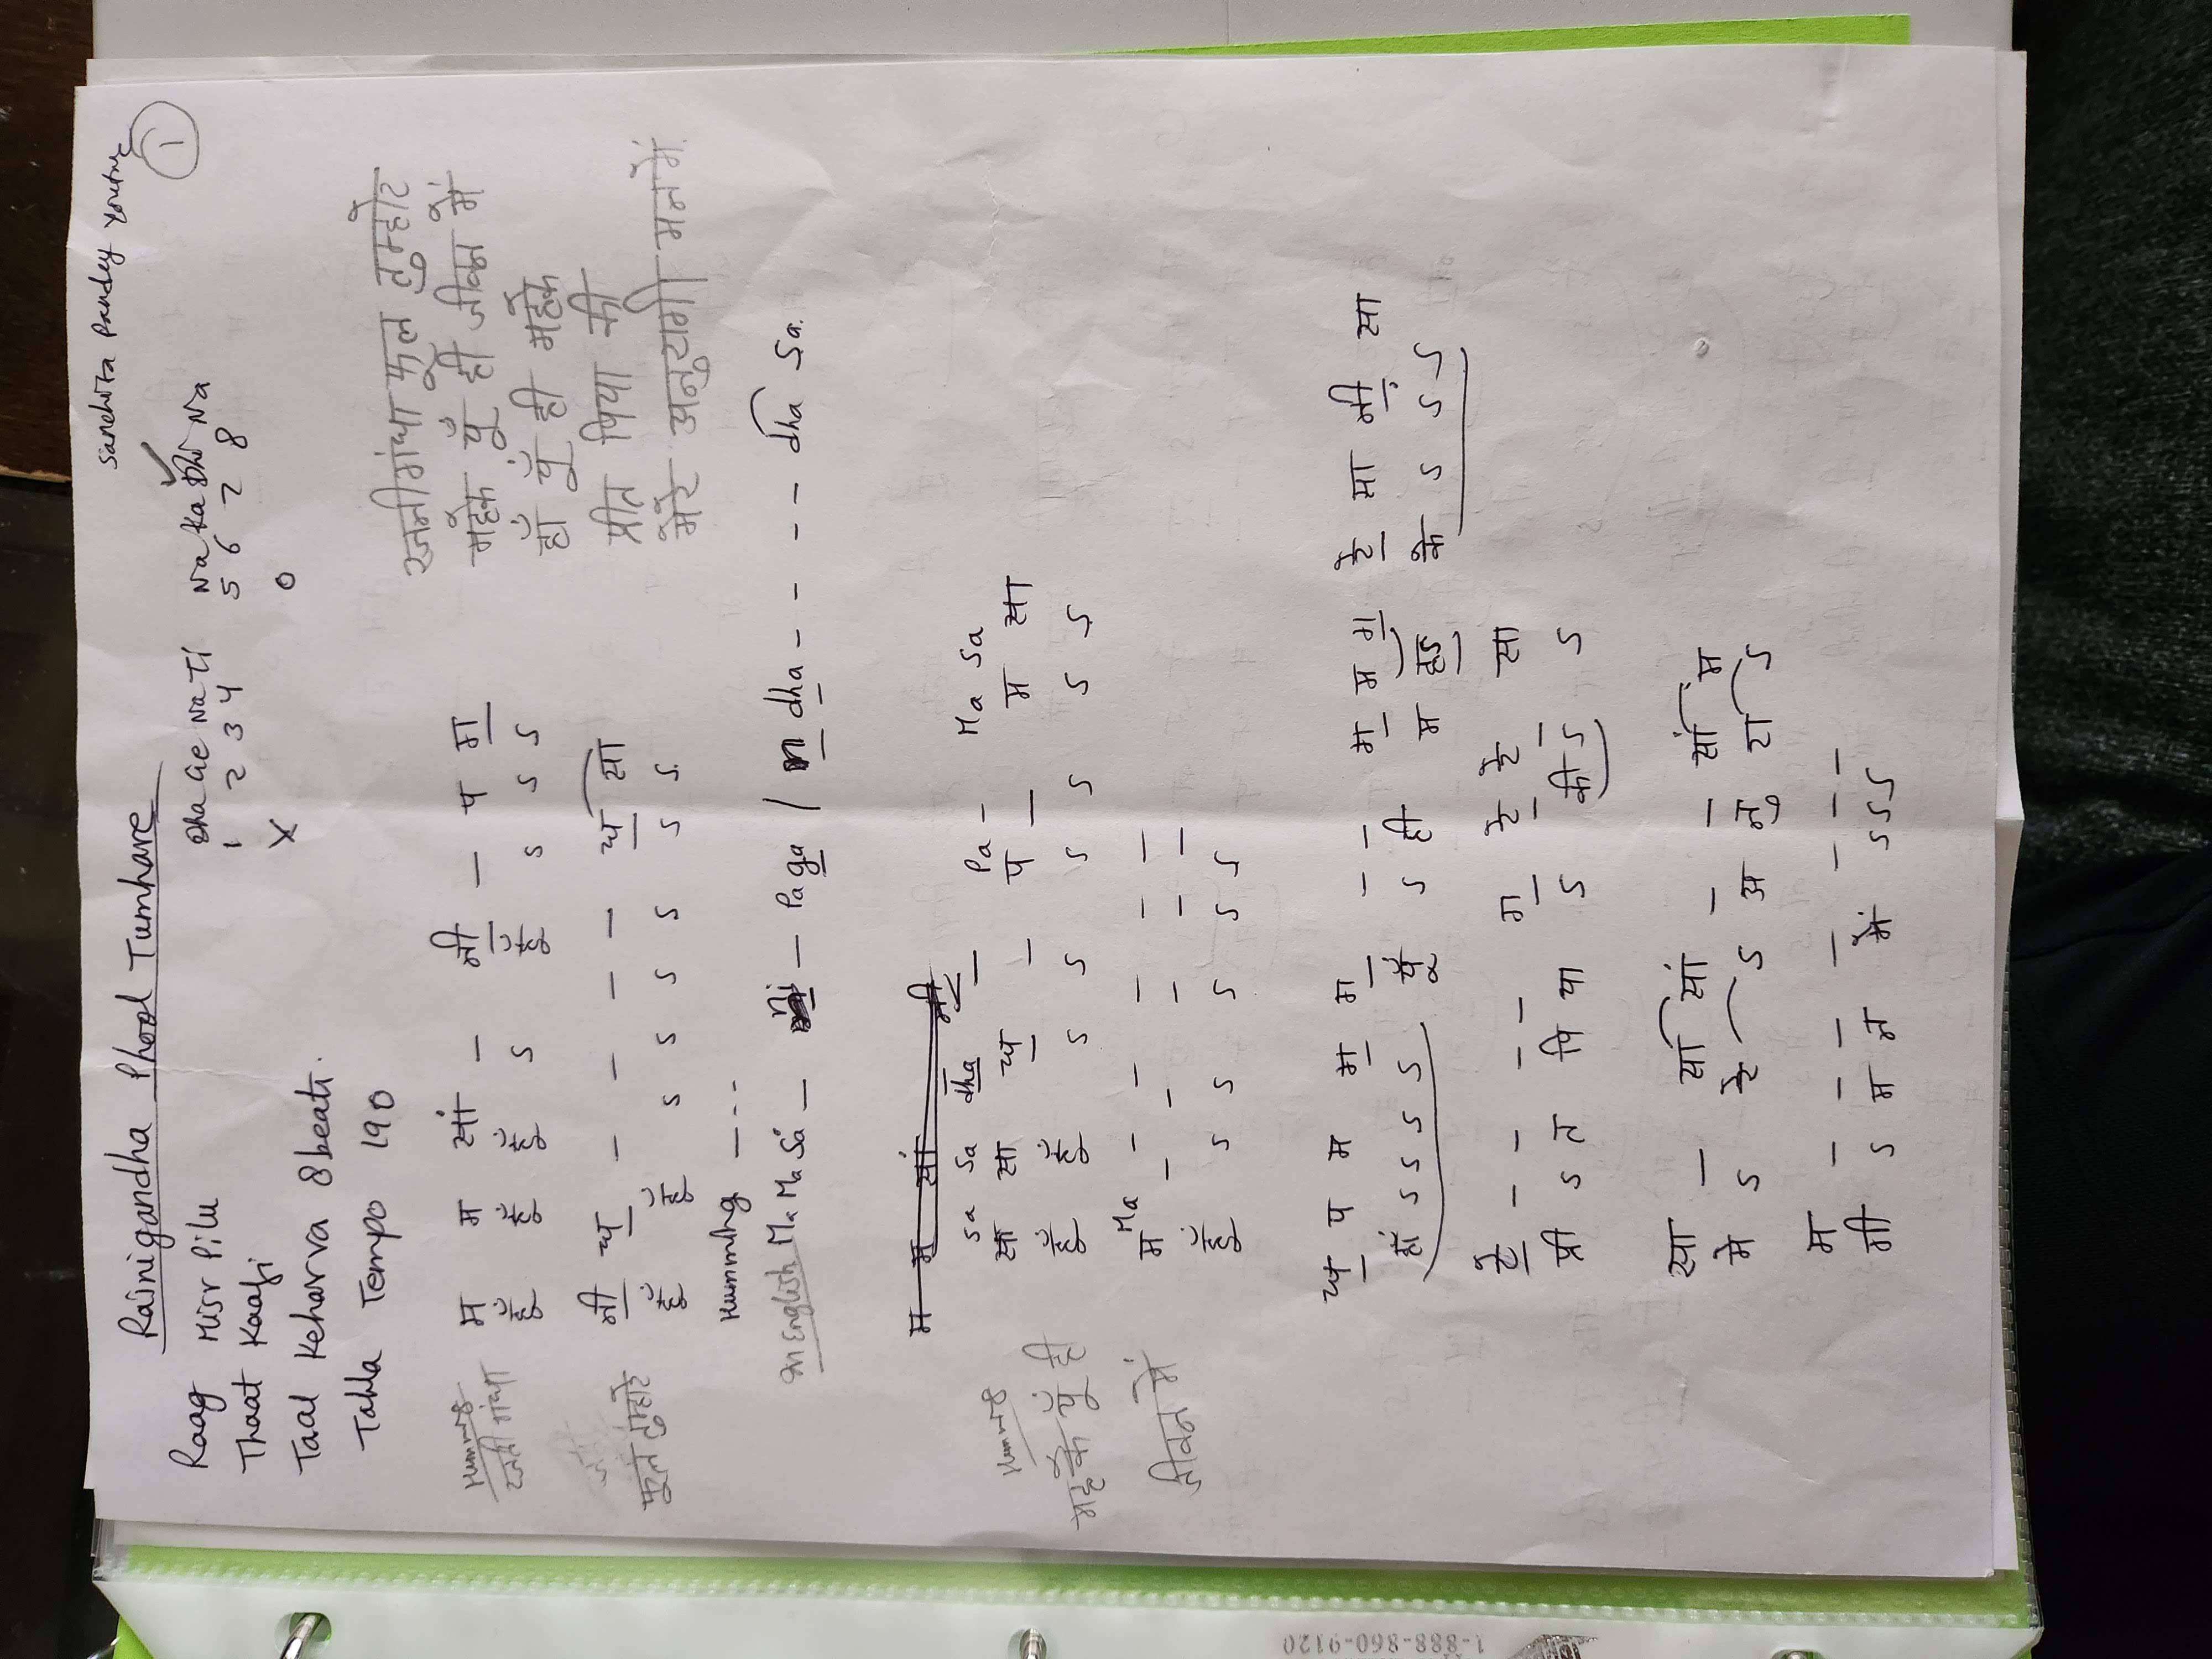 Sanchita Pandey Youtube
1
Rainigandha Phool Tumhare
Raag Misr Pilu
Dha Ge Na Ti Na Ka Dhi Na
1 2 3 4 5 6 7 8
X 0
Thaat Kaafi
Taal Keharva 8 beats.
Tabla Tempo 190
रजनीगंधा फूल तुम्हारे
महके यूँ ही जीवन में
हाँ यूँ ही महके
प्रीत पिया की
मेरे अनुरागी मन में.
Humming
रजनी गंधा
म म सां – नी॒ – प ग॒
हूँ हूँ हूँ ऽ हूँ ऽ ऽ ऽ
फूल तुम्हारे
नी॒ ध॒ – – – – ध॒ सा
हूँ हूँ ऽ ऽ ऽ ऽ ऽ ऽ
Humming – - - -
In English Ma Ma Sȧ – ni – Pa ga / n dha - - - - dha Sa.
म म सां नी
Sa Sa dha – Pa – Ma Sa
Humming
सा सा ध॒ – प – म सा
महके यूँ ही
हूँ हूँ ऽ ऽ ऽ ऽ ऽ ऽ
Ma – – – – –
जीवन में
म – – – – –
हूँ ऽ ऽ ऽ ऽ ऽ
ध॒ प म ग॒ ग॒ – – ग॒ म ग॒ रे॒ सा नी़॒ सा
हाँ ऽ ऽ ऽ ऽ यूँ ऽ ही म हऽ के ऽ ऽ ऽ
रे॒ – – – – ग॒ रे॒ रे॒ सा
प्री ऽ त पि या ऽ की ऽ ऽ
सा – सा सां – – सां म
मे ऽ रे ऽ अ नु रा ऽ
म – – – – – – –
गी ऽ म न में ऽ ऽ ऽ
1-888-860-9120